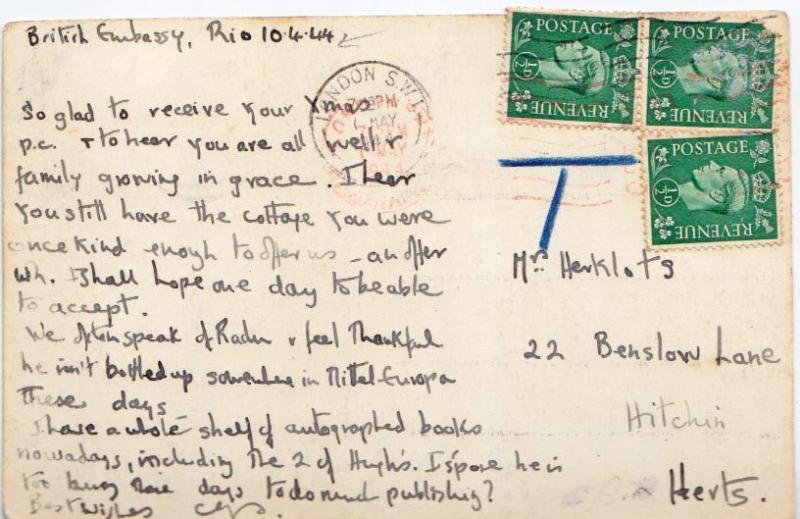 British Embassy, Rio 10.4.44
So glad to receive your Xmas
p.c. & to hear you are all well &
family growing in grace. I hear
you still have the cottage you were
once kind enough to offer us - an offer
wh. I shall hope one day to be able
to accept.
We often speak of Radu & feel thankful
he isn't bottled up somewhere in Mittel-Europa
these days
I have a whole shelf of autographed books
nowadays, including the 2 of Hugh's. I s'pose he is
too busy these days to do much publishing?
Best wishes
LONDON S.W.1
MAY
T
POSTAGE
½D
REVENUE
POSTAGE
½D
REVENUE
POSTAGE
½D
REVENUE
Mrs Herklots
22 Benslow Lane
Hitchin
Herts.